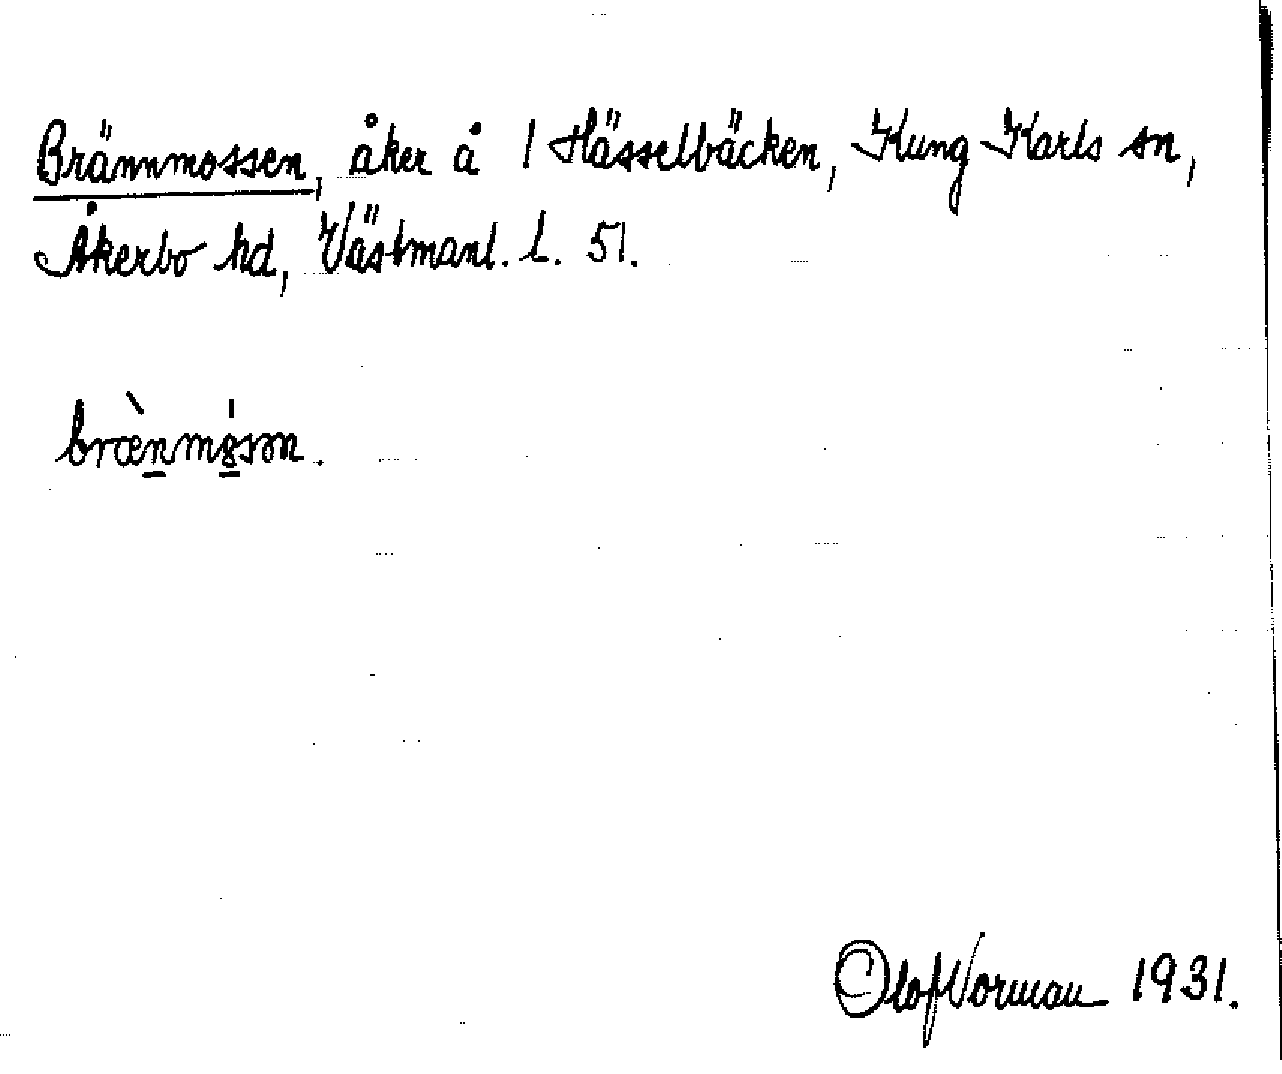 Brännmossen, åker å 1 Hässelbäcken, Kung Karls sn,
Åkerbo hd, Västmanl. l. 51.
bræ̀nmȯsən.
Olof Norman 1931.